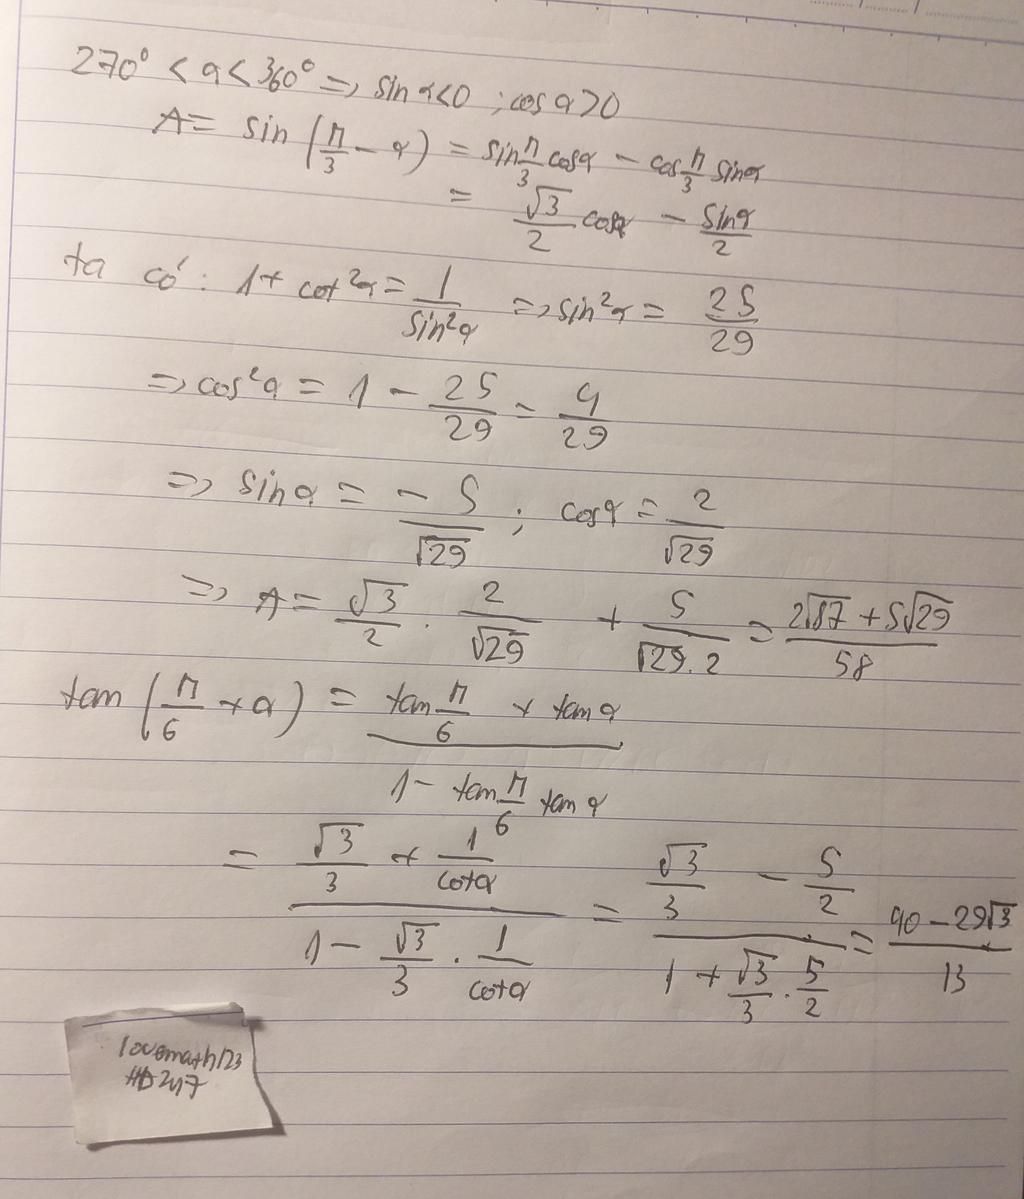 270° < α < 360° => sin α < 0 ; cos α > 0
A = sin (π/3 - α) = sin π/3 cos α - cos π/3 sin α
= √3/2 cos α - sin α/2
ta có : 1 + cot²α = 1/sin²α => sin²α = 25/29
=> cos²α = 1 - 25/29 = 4/29
=> sin α = -5/√29 ; cos α = 2/√29
=> A = √3/2 . 2/√29 + 5/√29.2 = (2√87 + 5√29)/58
tan (π/6 + α) = (tan π/6 + tan α)/(1 - tan π/6 tan α)
= (√3/3 + 1/cot α)/(1 - √3/3 . 1/cot α) = (√3/3 - 5/2)/(1 + √3/3 . 5/2) = (40 - 29√3)/13
lovemath123